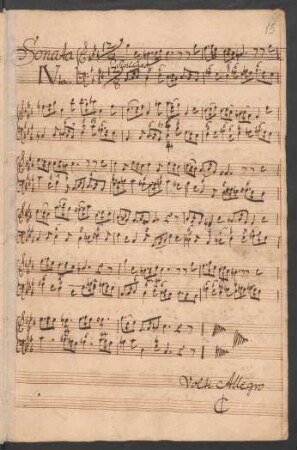 15
Sonata
IV ta.
Volti Allegro